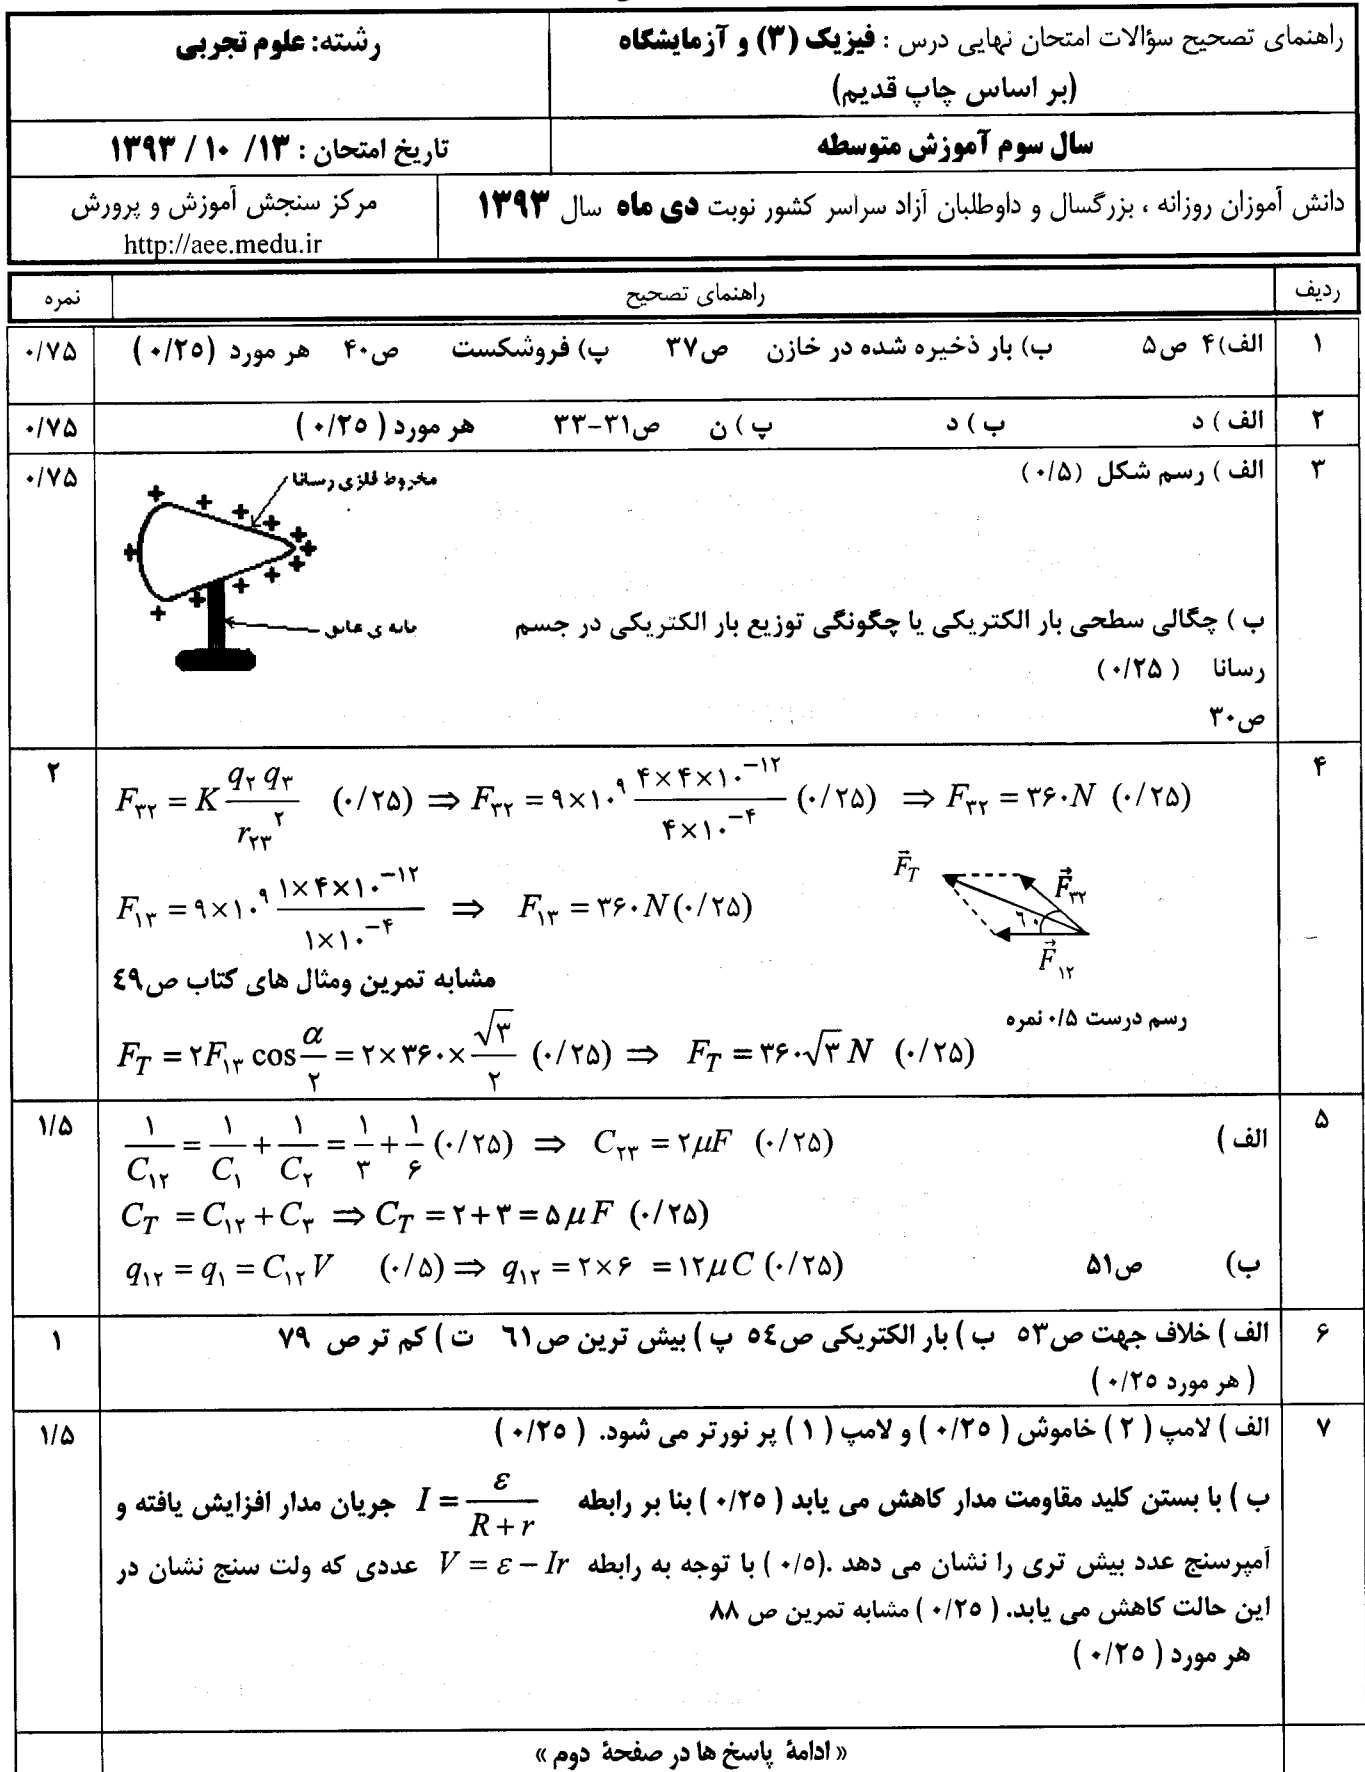 راهنمای تصحیح سؤالات امتحان نهایی درس : فیزیک (۳) و آزمایشگاه
(بر اساس چاپ قدیم)
رشته: علوم تجربی
سال سوم آموزش متوسطه
تاریخ امتحان : ۱۳/ ۱۰ / ۱۳۹۳
دانش آموزان روزانه ، بزرگسال و داوطلبان آزاد سراسر کشور نوبت دی ماه سال ۱۳۹۳
مرکز سنجش آموزش و پرورش
http://aee.medu.ir
ردیف راهنمای تصحیح نمره
۱ الف)۴ ص۵ ب) بار ذخیره شده در خازن ص۳۷ پ) فروشکست ص۴۰ هر مورد (۰/۲۵) ۰/۷۵
۲ الف ) د ب ) د پ ) ن ص۳۱-۳۳ هر مورد ( ۰/۲۵) ۰/۷۵
۳ الف ) رسم شکل (۰/۵) ۰/۷۵
مخروط فلزی رسانا
پایه ی عایق
ب ) چگالی سطحی بار الکتریکی یا چگونگی توزیع بار الکتریکی در جسم
رسانا ( ۰/۲۵)
ص۳۰
۴ ۲
F۳۲ = K q۲ q۳ / r۲۳^۲ (۰/۲۵) ⇒ F۳۲ = ۹×۱۰^۹ ۴×۴×۱۰^−۱۲ / ۴×۱۰^−۴ (۰/۲۵) ⇒ F۳۲ = ۳۶۰N (۰/۲۵)
F۱۳ = ۹×۱۰^۹ ۱×۴×۱۰^−۱۲ / ۱×۱۰^−۴ ⇒ F۱۳ = ۳۶۰N(۰/۲۵)
F_T F۳۲ ٦۰ F۱۲
مشابه تمرین ومثال های کتاب ص٤۹
رسم درست ۰/۵ نمره
F_T = ۲F۱۳ cos α/۲ = ۲×۳۶۰× √۳/۲ (۰/۲۵) ⇒ F_T = ۳۶۰√۳ N (۰/۲۵)
۵ ۱/۵
الف ) ۱/C۱۲ = ۱/C۱ + ۱/C۲ = ۱/۳ + ۱/۶ (۰/۲۵) ⇒ C۲۳ = ۲μF (۰/۲۵)
C_T = C۱۲ + C۳ ⇒ C_T = ۲+۳ = ۵μF (۰/۲۵)
ب) ص۵۱ q۱۲ = q۱ = C۱۲V (۰/۵) ⇒ q۱۲ = ۲×۶ = ۱۲μC (۰/۲۵)
۶ الف ) خلاف جهت ص۵۳ ب ) بار الکتریکی ص٥٤ پ ) بیش ترین ص٦۱ ت ) کم تر ص ۷۹ ۱
( هر مورد ۰/۲۵ )
۷ الف ) لامپ ( ۲ ) خاموش ( ۰/۲۵ ) و لامپ ( ۱ ) پر نورتر می شود. ( ۰/۲۵ ) ۱/۵
ب ) با بستن کلید مقاومت مدار کاهش می یابد ( ۰/۲۵ ) بنا بر رابطه I = ε / R + r جریان مدار افزایش یافته و
آمپرسنج عدد بیش تری را نشان می دهد .(۰/۵ ) با توجه به رابطه V = ε − Ir عددی که ولت سنج نشان در
این حالت کاهش می یابد. ( ۰/۲۵ ) مشابه تمرین ص ۸۸
هر مورد ( ۰/۲۵ )
« ادامهٔ پاسخ ها در صفحهٔ دوم »